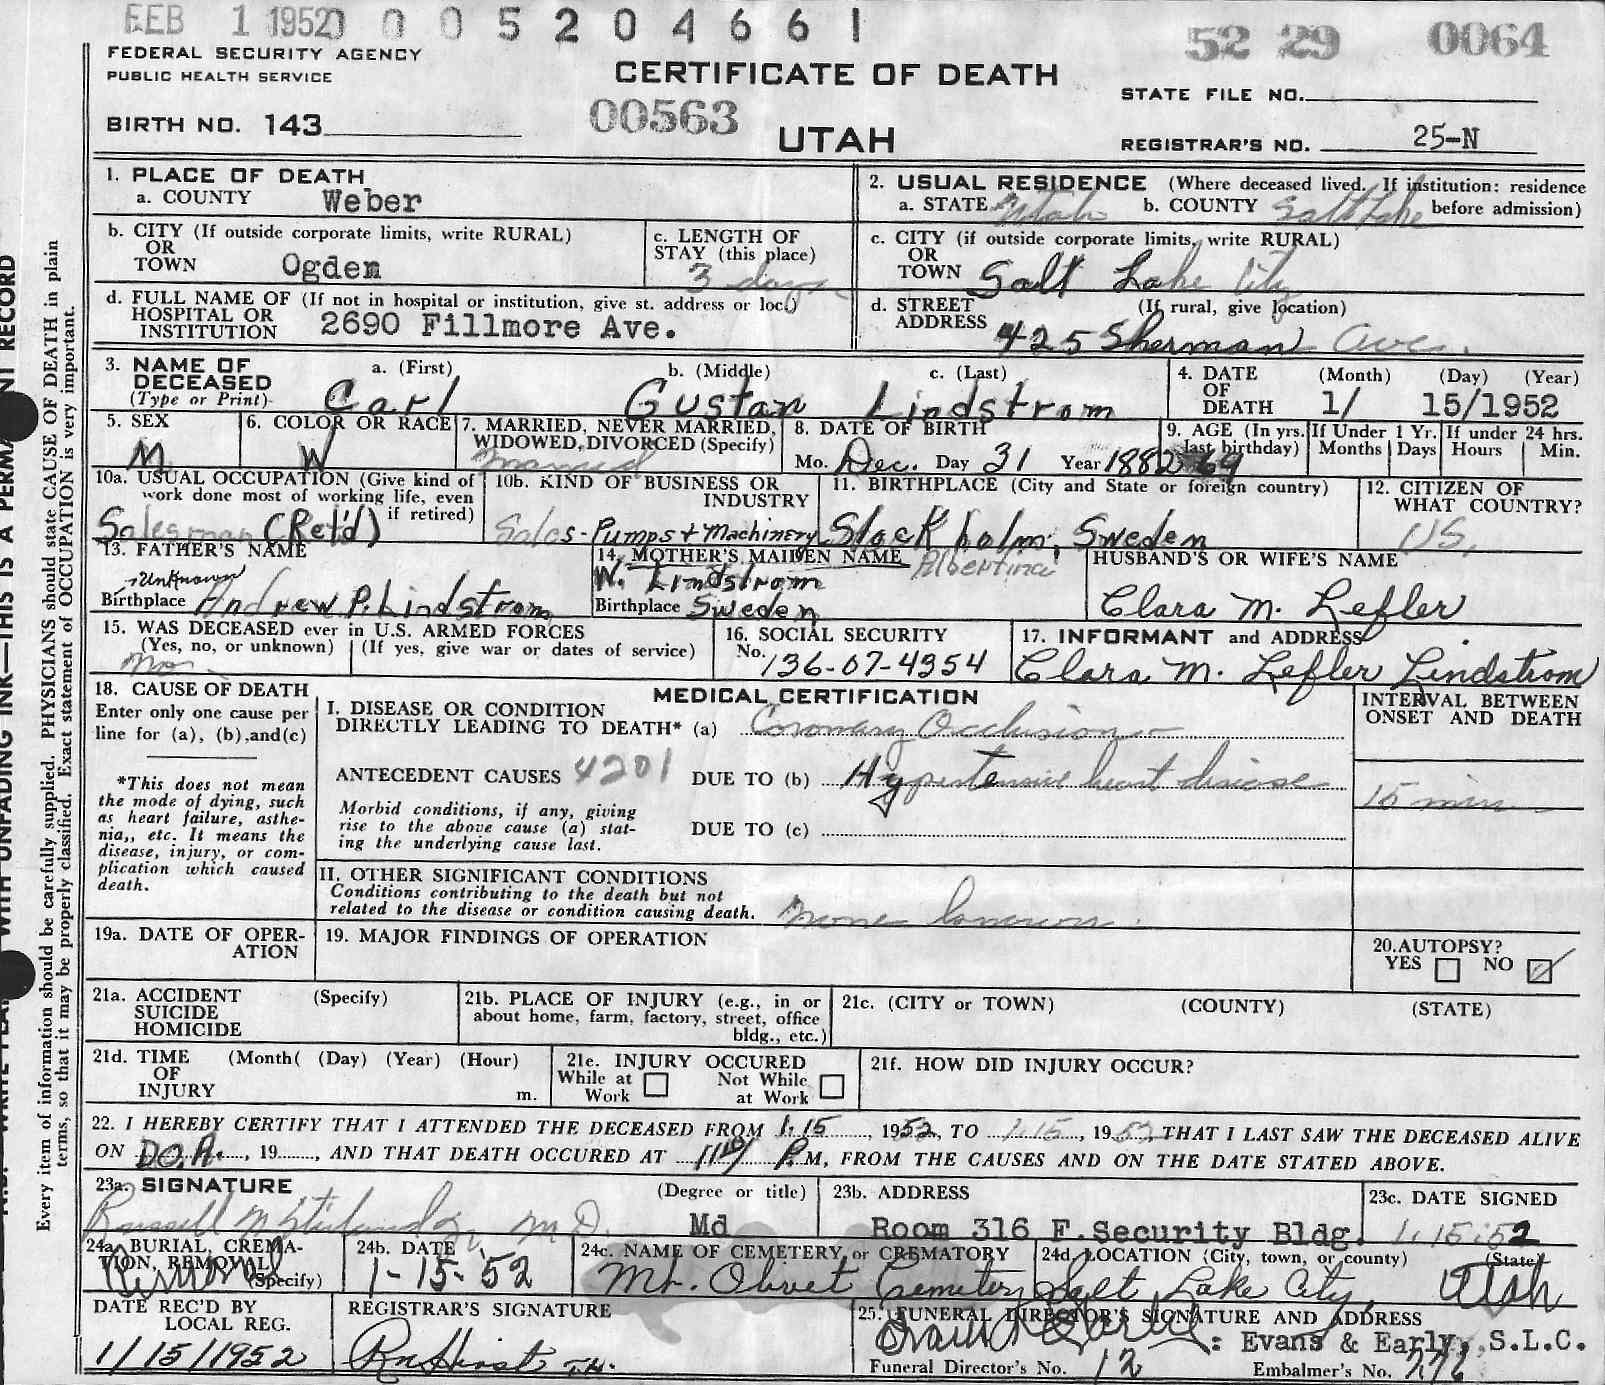 FEB 1 1952 0 0 0 5 2 0 4 6 6 1
52 29 0064
FEDERAL SECURITY AGENCY
PUBLIC HEALTH SERVICE
CERTIFICATE OF DEATH
STATE FILE NO.
BIRTH NO. 143
00563
UTAH
REGISTRAR'S NO. 25-N
1. PLACE OF DEATH
a. COUNTY Weber
2. USUAL RESIDENCE (Where deceased lived. If institution: residence before admission)
a. STATE Utah b. COUNTY Salt Lake
b. CITY (If outside corporate limits, write RURAL)
OR
TOWN Ogden
c. LENGTH OF
STAY (this place)
3 days
c. CITY (if outside corporate limits, write RURAL)
OR
TOWN Salt Lake City
d. FULL NAME OF (If not in hospital or institution, give st. address or loc.)
HOSPITAL OR
INSTITUTION 2690 Fillmore Ave.
d. STREET (If rural, give location)
ADDRESS 425 Sherman Ave.
3. NAME OF
DECEASED
(Type or Print)
a. (First) b. (Middle) c. (Last)
Carl Gustav Lindstrom
4. DATE
OF
DEATH
(Month) (Day) (Year)
1/ 15/1952
5. SEX
M
6. COLOR OR RACE
W
7. MARRIED, NEVER MARRIED,
WIDOWED, DIVORCED (Specify)
Married
8. DATE OF BIRTH
Mo. Dec. Day 31 Year 1882
9. AGE (In yrs. last birthday)
69
If Under 1 Yr.
Months Days
If under 24 hrs.
Hours Min.
10a. USUAL OCCUPATION (Give kind of
work done most of working life, even
if retired)
Salesman (Ret'd)
10b. KIND OF BUSINESS OR
INDUSTRY
Sales-Pumps + Machinery
11. BIRTHPLACE (City and State or foreign country)
Stockholm, Sweden
12. CITIZEN OF
WHAT COUNTRY?
US.
13. FATHER'S NAME
Unknown
Birthplace Andrew P. Lindstrom
14. MOTHER'S MAIDEN NAME
Albertina
W. Lindstrom
Birthplace Sweden
HUSBAND'S OR WIFE'S NAME
Clara M. Lefler
15. WAS DECEASED ever in U.S. ARMED FORCES
(Yes, no, or unknown) (If yes, give war or dates of service)
No
16. SOCIAL SECURITY
No. 136-07-4354
17. INFORMANT and ADDRESS
Clara M. Lefler Lindstrom
18. CAUSE OF DEATH
Enter only one cause per
line for (a), (b), and (c)
*This does not mean
the mode of dying, such
as heart failure, asthe-
nia,, etc. It means the
disease, injury, or com-
plication which caused
death.
MEDICAL CERTIFICATION
I. DISEASE OR CONDITION
DIRECTLY LEADING TO DEATH* (a) Coronary Occlusion
ANTECEDENT CAUSES 4201 DUE TO (b) Hypertensive heart disease
Morbid conditions, if any, giving
rise to the above cause (a) stat-
ing the underlying cause last.
DUE TO (c)
INTERVAL BETWEEN
ONSET AND DEATH
15 min
II. OTHER SIGNIFICANT CONDITIONS
Conditions contributing to the death but not
related to the disease or condition causing death.
None known.
19a. DATE OF OPER-
ATION
19. MAJOR FINDINGS OF OPERATION
20. AUTOPSY?
YES NO
21a. ACCIDENT (Specify)
SUICIDE
HOMICIDE
21b. PLACE OF INJURY (e.g., in or
about home, farm, factory, street, office
bldg., etc.)
21c. (CITY or TOWN) (COUNTY) (STATE)
21d. TIME (Month( (Day) (Year) (Hour)
OF
INJURY m.
21e. INJURY OCCURED
While at Work Not While at Work
21f. HOW DID INJURY OCCUR?
22. I HEREBY CERTIFY THAT I ATTENDED THE DECEASED FROM 1.15, 1952, TO 1.15, 1952 THAT I LAST SAW THE DECEASED ALIVE
ON D.O.A., 19, AND THAT DEATH OCCURED AT P.M, FROM THE CAUSES AND ON THE DATE STATED ABOVE.
23a. SIGNATURE (Degree or title)
Russell M.D. Md
23b. ADDRESS
Room 316 F.Security Bldg.
23c. DATE SIGNED
1.15.52
24a. BURIAL, CREMA-
TION, REMOVAL
(Specify)
Removal
24b. DATE
1-15-52
24c. NAME OF CEMETERY or CREMATORY
Mt. Olivet Cemetery
24d. LOCATION (City, town, or county) (State)
Salt Lake City, Utah
DATE REC'D BY
LOCAL REG.
1/15/1952
REGISTRAR'S SIGNATURE
25. FUNERAL DIRECTOR'S SIGNATURE AND ADDRESS
: Evans & Early, S.L.C.
Funeral Director's No. 12 Embalmer's No. 276
Every item of information should be carefully supplied. PHYSICIANS should state CAUSE OF DEATH in plain
terms, so that it may be properly classified. Exact statement of OCCUPATION is very important.
WITH UNFADING INK—THIS IS A PERMANENT RECORD